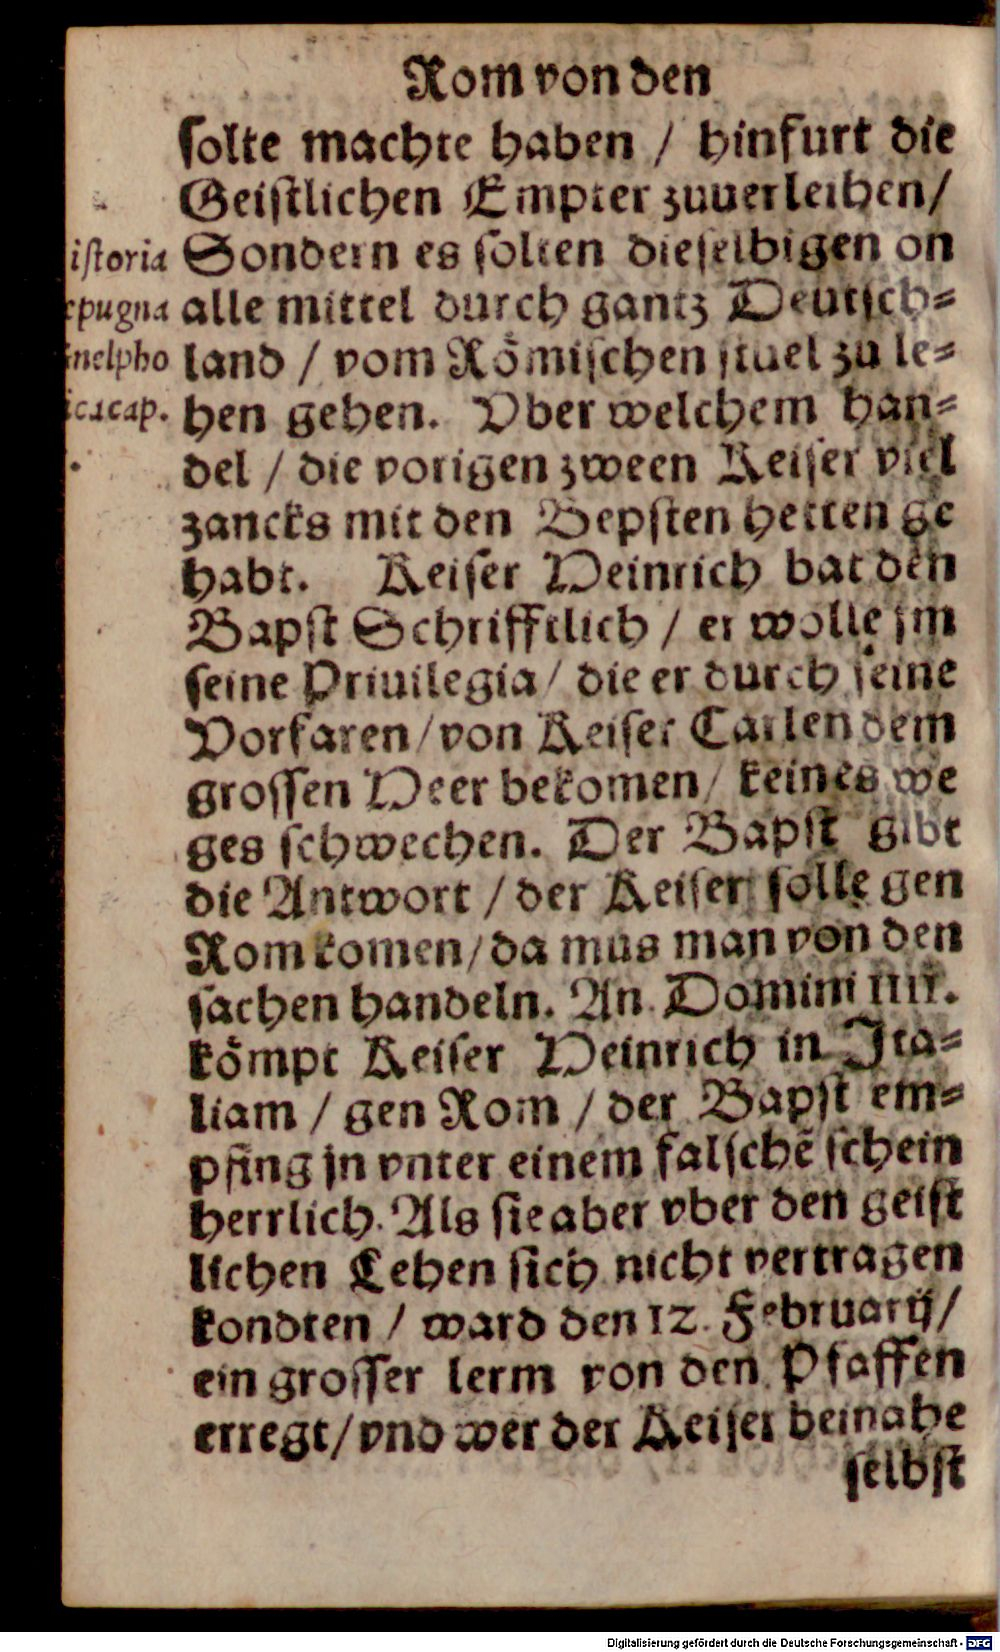 Rom von den
solte machte haben / hinfurt die
Geistlichen Empter zuuerleihen/
Sondern es solten dieselbigen on
alle mittel durch gantz Deutsch-
land / vom Römischen stuel zu le-
hen gehen. Vber welchem han-
del / die vorigen zween Keiser viel
zancks mit den Bepsten hetten ge
habt. Keiser Heinrich bat den
Bapst Schrifftlich / er wolle jm
seine Priuilegia/ die er durch seine
Vorfaren/von Keiser Carlen dem
grossen Heer bekomen/ keines we
ges schwechen. Der Bapst gibt
die Antwort / der Keiser solle gen
Rom komen/da mus man von den
sachen handeln. An. Domini 1111.
kömpt Keiser Heinrich in Jta-
liam / gen Rom / der Bapst em-
pfing jn vnter einem falschẽ schein
herrlich. Als sie aber vber den geist
lichen Lehen sich nicht vertragen
kondten / ward den 12. Februarij/
ein grosser lerm von den Pfaffen
erregt/vnd wer der Keiser beinahe
selbst
istoria
epugna
nelpho
icacap.
Digitalisierung gefördert durch die Deutsche Forschungsgemeinschaft - DFG